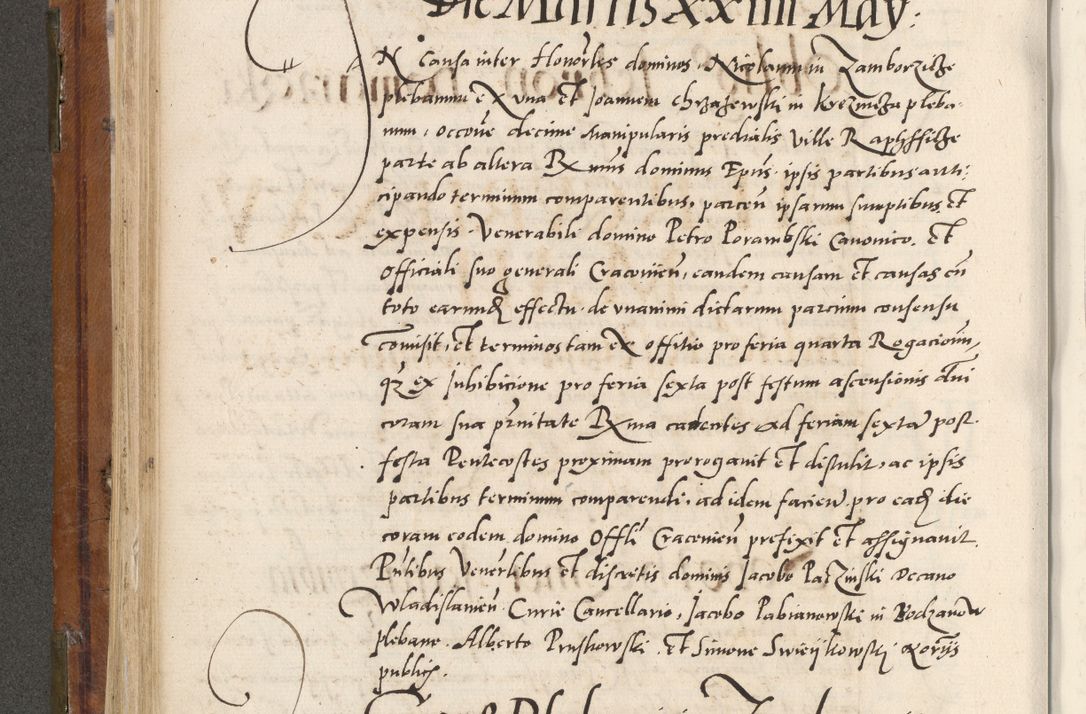 Die Martis XXIIII May:
IN Causa inter Honorles dominos Nicolaum in Zamborzicze
plebanum ex vna Et Joannem Chrzązewski in Krezmeza pleba-
num, occone decime manipularis predialis Ville Raphsficze
parte ab altera Rmus dominus Epus ipsis partibus anti-
cipando terminum comparentibus, parcen ipsarum sumptibus Et
expensis Venerabili domino Petro Porambski Canonico Et
Officiali suo generali Cracouien, eandem causam Et causas cu
toto earund effectu de vnanimi dictarum parcium consensu
Comisit, Et terminos tam ex offitio pro feria quarta Rogacionu,
qz ex Inhibicione pro feria sexta post festum ascensionis dni
coram sua prnitate Rma cadentes ad feriam sexta post
festa Pentecostes proximam prorogauit Et distulit, ac ipsis
partibus terminum comparendi, ad idem facien pro ead die
coram eodem domino Offli Cracouien prefixit Et assignauit.
Pntibus Venerlibus Et discretis dominis Jacobo Paczinski Decano
Wladislauien Curie Cancellario, Jacobo Pabianowski in Bodzanow
plebano Alberto Pruskowski Et Simone Swieijkowskj Notrijs
publicis.